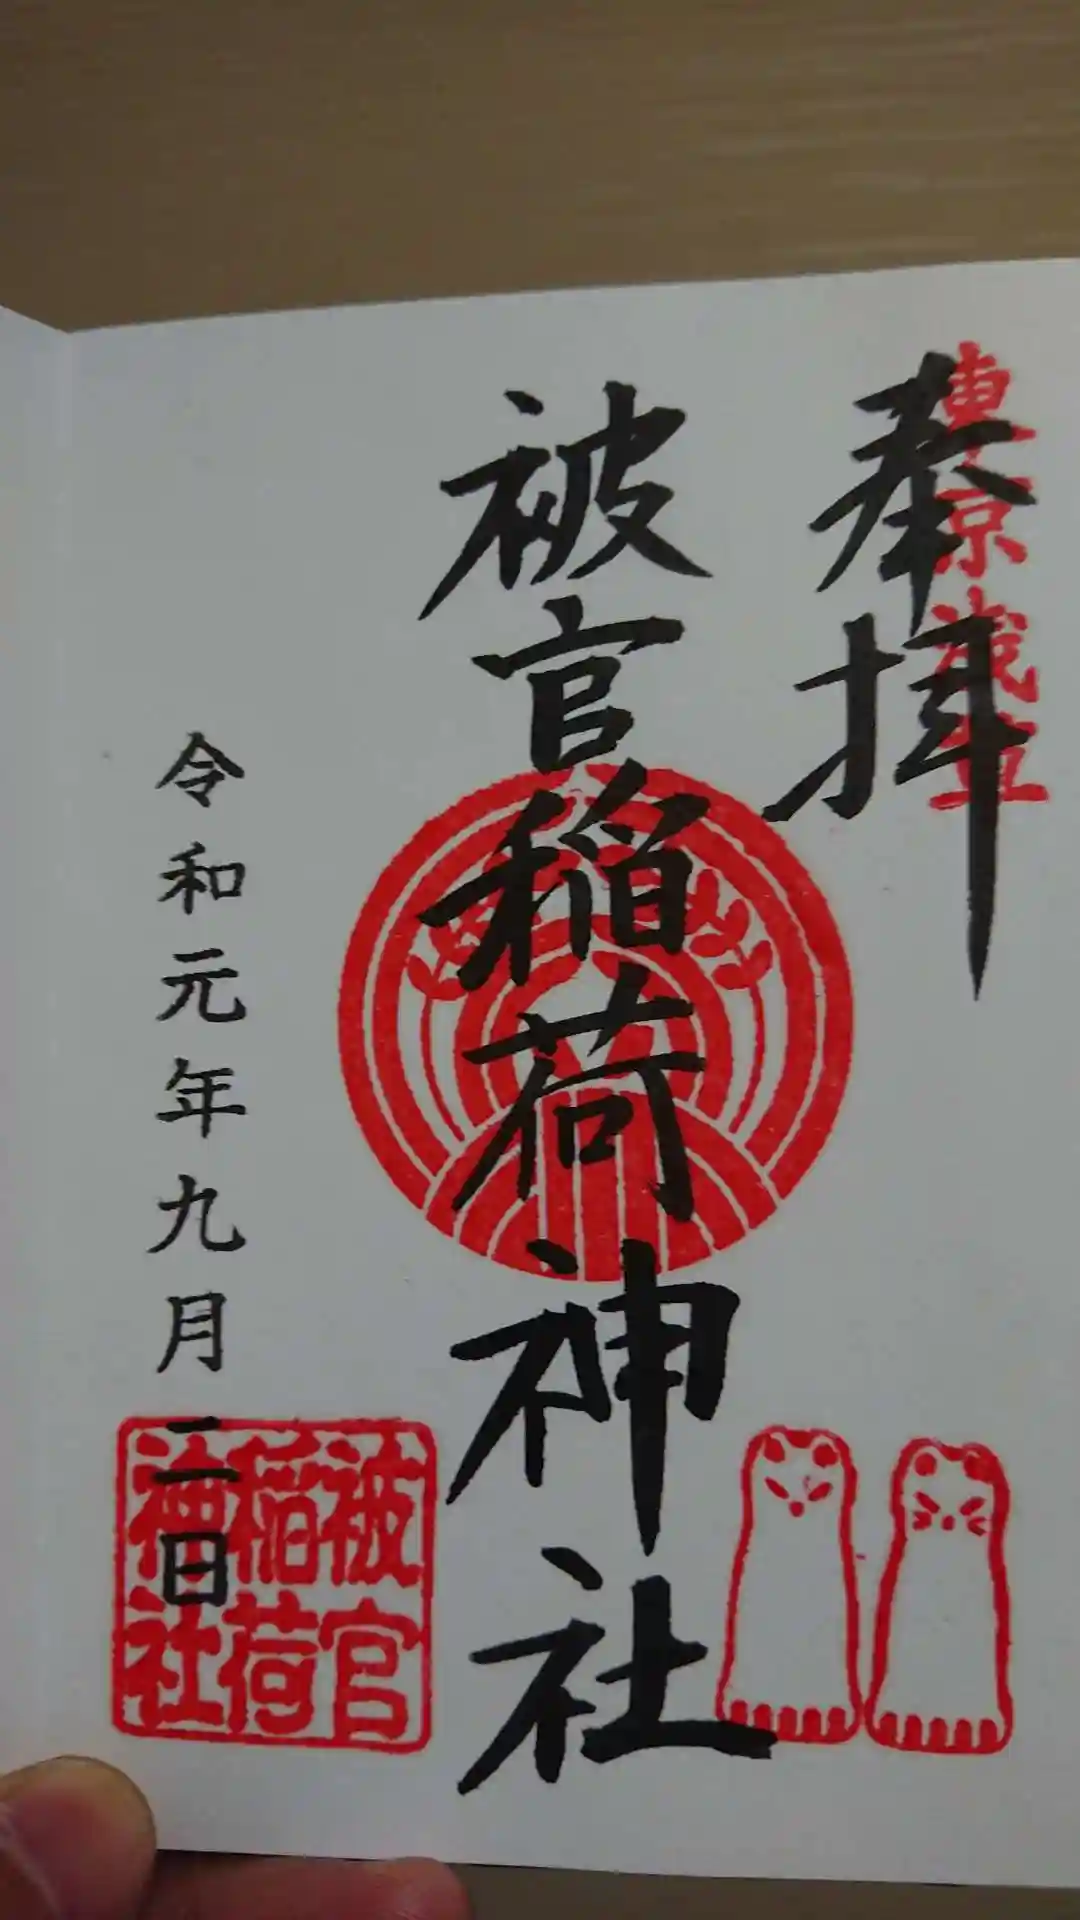 東京浅草
奉拝
被官稲荷神社
令和元年九月二日
被官
稲荷
神社